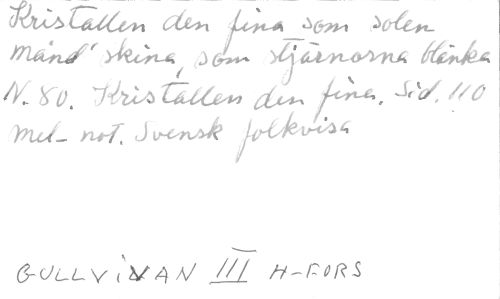 Kristallen den fina som solen
månd' skina, som stjärnorna blänka
N. 80. Kristallen den fina. Sid. 110
mel- not. Svensk folkvisa
GULLVIVAN III H-FORS